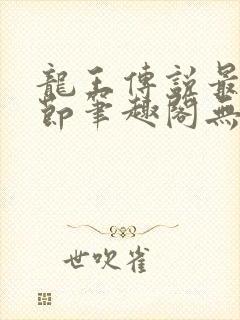 龍王傳説最
節筆趣閣無
世吹雀